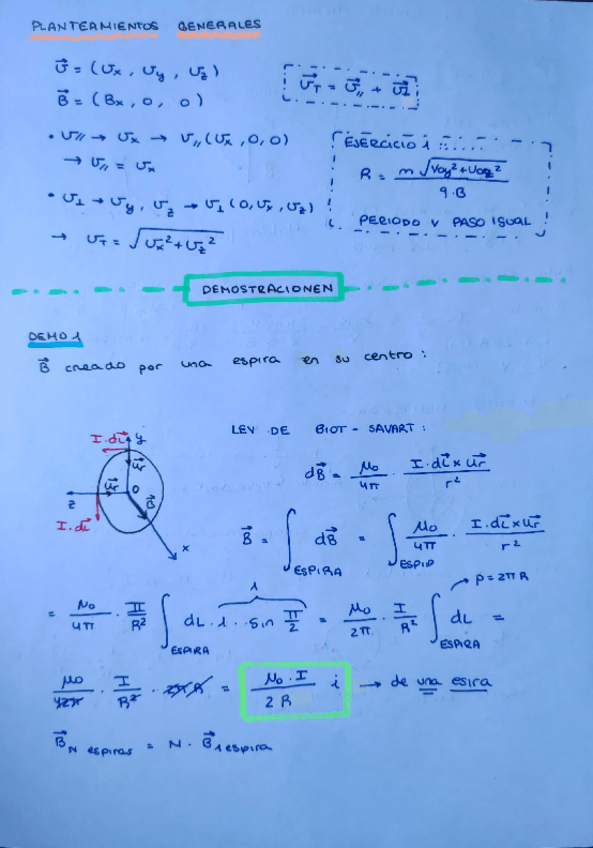 PLANTEAMIENTOS GENERALES
v⃗ = (vx, vy, vz)
B⃗ = (Bx, 0, 0)
v⃗T = v⃗// + v⃗⊥
• v// → vx → v//(vx, 0, 0)
→ v// = vx
• v⊥ → vy, vz → v⊥(0, vx, vz)
→ vT = √(vx² + vz²)
EJERCICIO 1 ::.....
R = m√(voy² + voz²) / q·B
PERIODO Y PASO IGUAL
DEMOSTRACIONEN
DEMO 1
B⃗ creado por una espira en su centro:
I·dL⃗ y
u⃗r
z u⃗r O B⃗
I·dL⃗
x
LEY DE BIOT-SAVART:
dB⃗ = μo/4π · I·dL⃗ x u⃗r / r²
B⃗ = ∫ESPIRA dB⃗ = ∫ESPIR μo/4π · I·dL⃗ x u⃗r / r²
1 → p = 2πR
= μo/4π · I/R² ∫ESPIRA dL·1·sin π/2 = μo/2π · I/R² ∫ESPIRA dL =
μo/42π · I/R² · 2πR = μo·I/2R i → de una esira
B⃗N espiras = N · B⃗1 espira